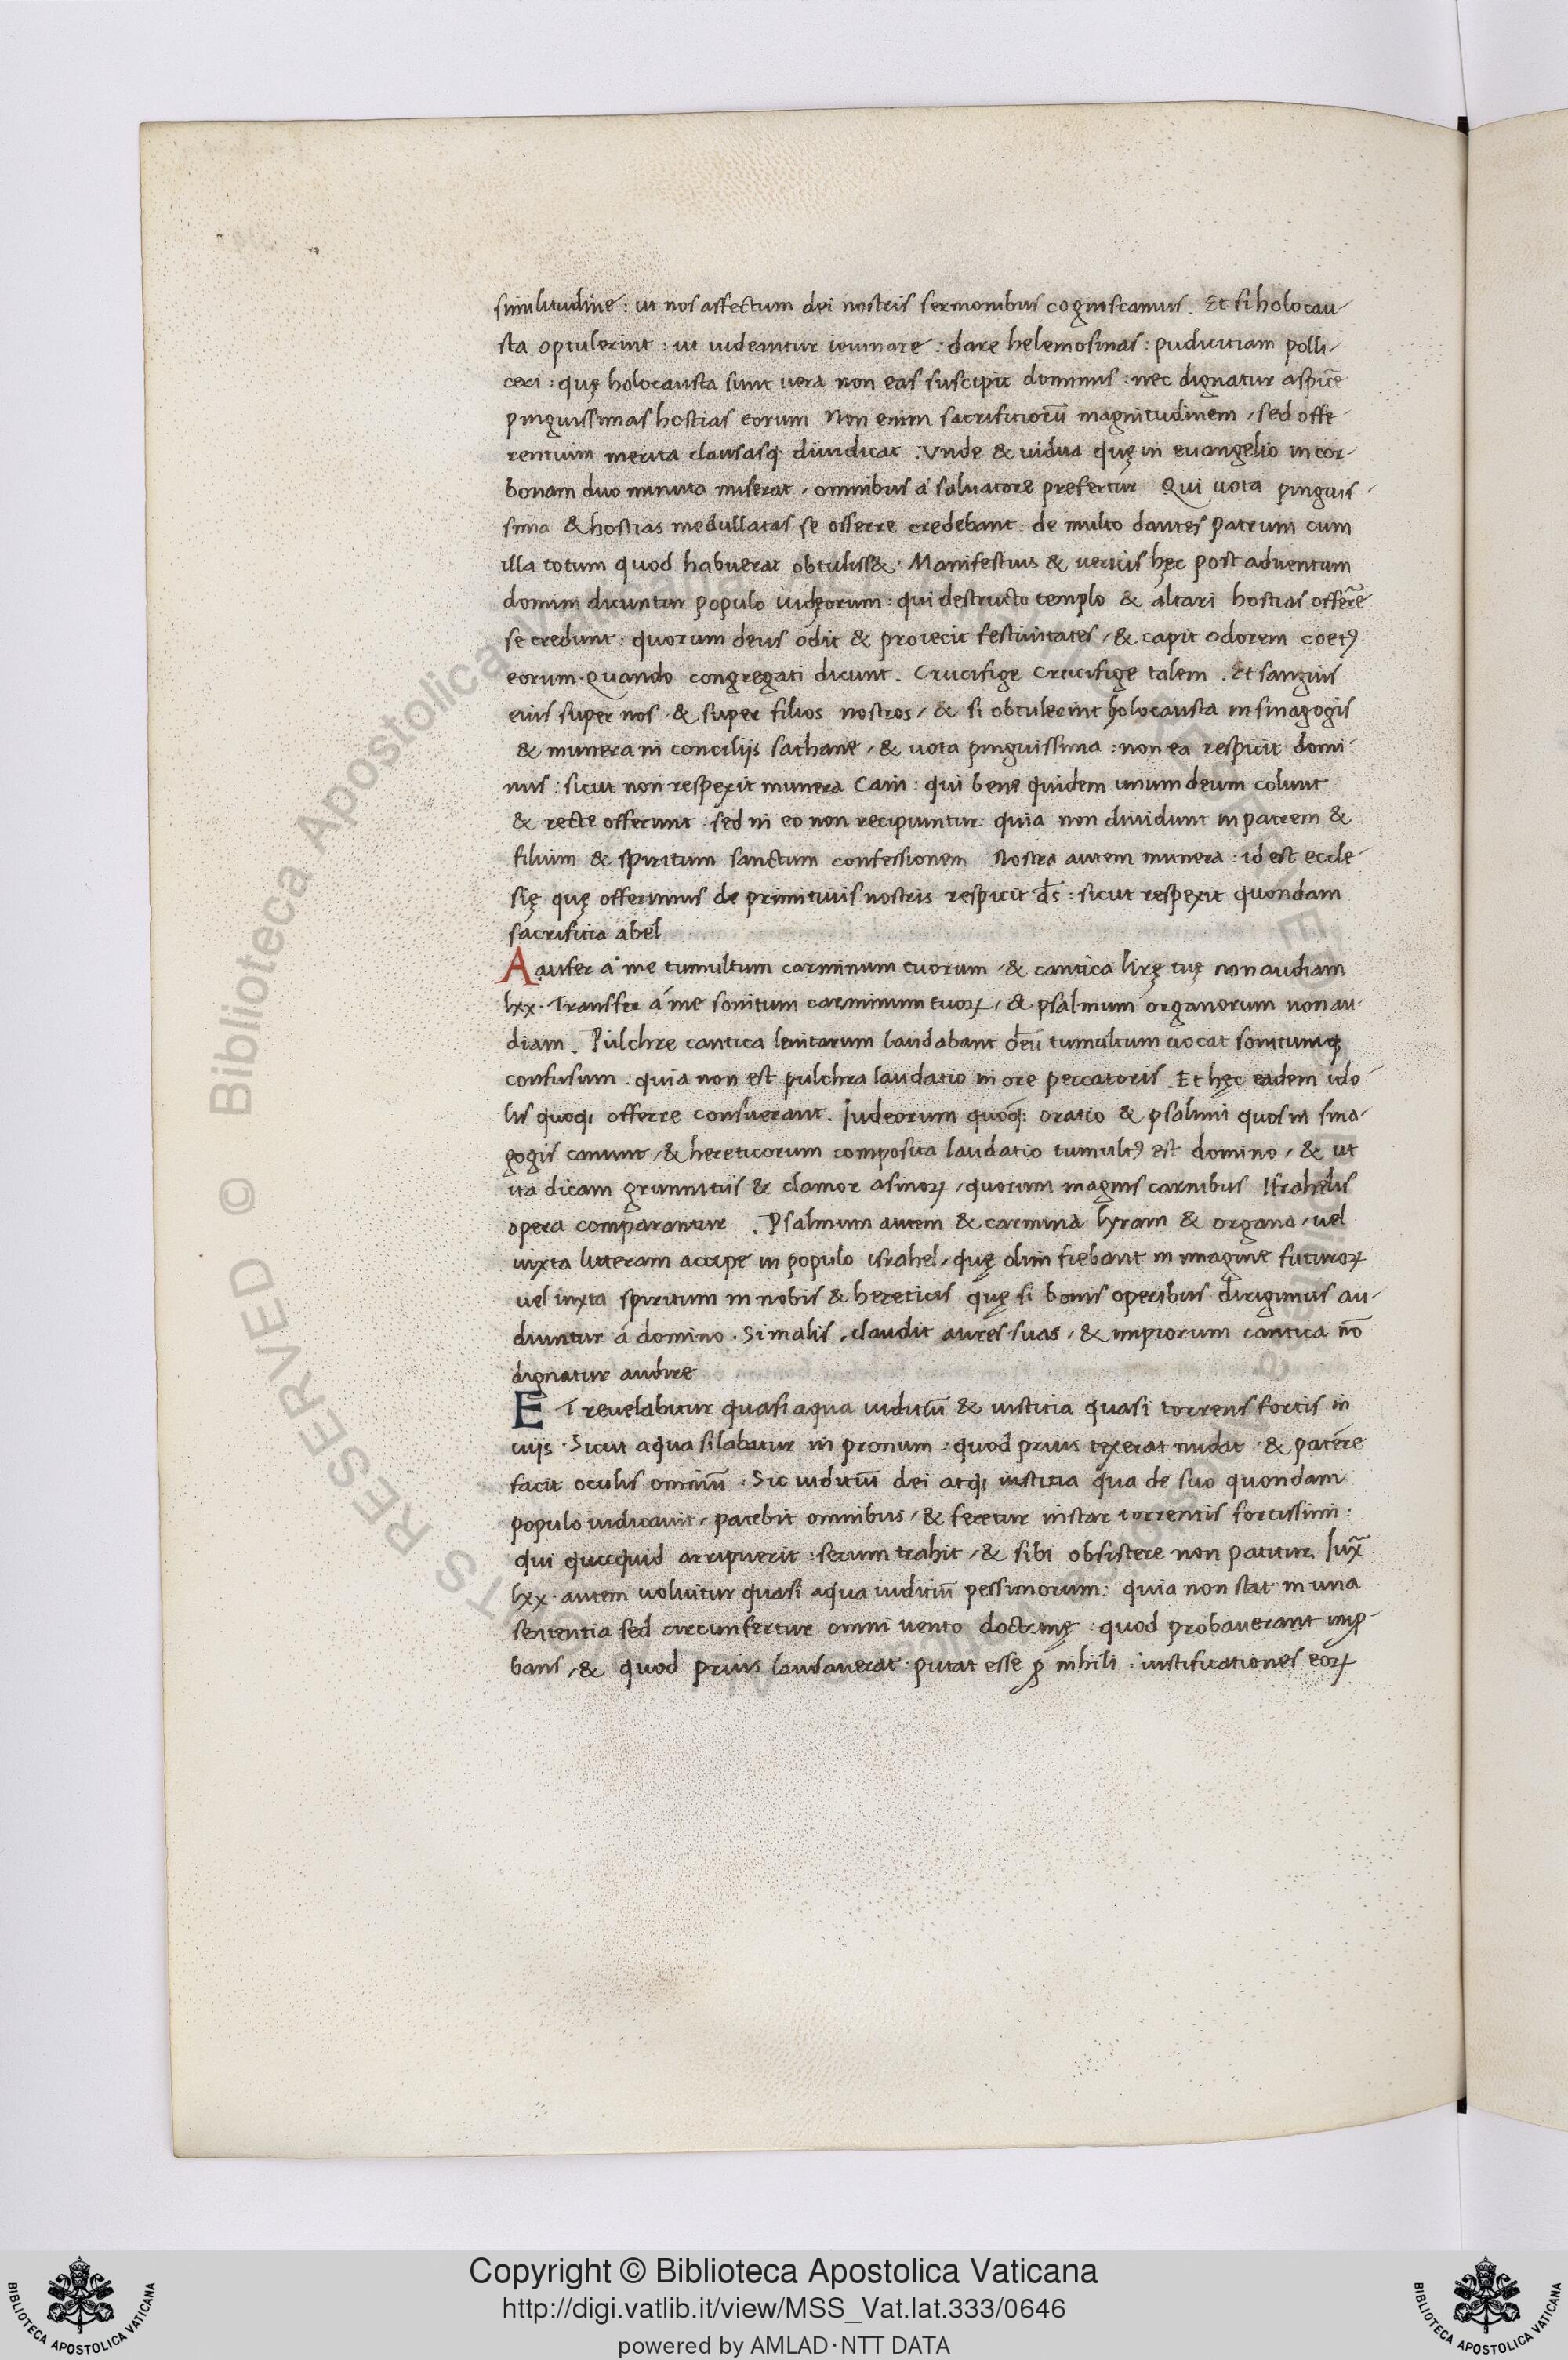 similitudine : ut nos affectum dei nostris sermonibus cognoscamus . Et si holocau-
sta optulerint : ut uideantur ieiunare : dare helemosinas : pudicitiam polli-
ceri : quę holocausta sunt uera non eas suscipit dominus : nec dignatur aspicē
pinguissimas hostias eorum Non enim sacrificiorū magnitudinem / sed offe-
rentium merita clausasq; diiudicat . Vnde & uidua quę in euangelio in cor-
bonam duo minuta miserat / omnibus á saluatore prefertur Qui uota pinguis-
sima & hostias medullatas se offerre credebant : de multo dantes patrum cum
illa totum quod habuerat obtuliss& . Manifestius & uerius hęc post aduentum
domini dicuntur populo iudęorum : qui destructo templo & altari hostias offerrē
se credunt : quorum deus odit & proiecit festiuitates / & capit odorem coetꝰ
eorum . Quando congregati dicunt . Crucifige Crucifige talem . Et sanguis
eius super nos & super filios nostros / & si obtulerint holocausta in sinagogis
& munera in conciliis sathane / & uota pinguissima : non ea respicit domi-
nus : sicut non respexit munera Cain : qui bene quidem unum deum colunt
& recte offerunt : sed in eo non recipiuntur : quia non diuidunt in patrem &
filium & spiritum sanctum confessionem Nostra autem munera : id est eccle-
się quę offerimus de primitiuis nostris respicit d̄s : sicut respexit quondam
sacrificia abel
Aaufer á me tumultum carminum tuorum / & cantica lirę tuę non audiam
lxx . Transfer á me sonitum carminum tuoꝝ / & psalmum organorum non au-
diam . Pulchre cantica leuitarum laudabant deū tumultum uocat sonitumq;
confusum : quia non est pulchra laudatio in ore peccatoris . Et hęc eadem ido-
lis quoq; offerre consuerant . Iudeorum quoq; oratio & psalmi quos in sina-
gogis canunt / & hereticorum composita laudatio tumultꝰ est domino / & ut
ita dicam grunnitus & clamor asinoꝝ / quorum magnis carnibus Israhelis
opera comparantur . Psalmum autem & carmina lyram & organa / uel
iuxta litteram accipe in populo israhel / quę olim fiebant in imagine futuroꝝ
uel iuxta spiritum in nobis & hereticis quę si bonis operibus dirigimus au-
diuntur á domino . Si malis . claudit aures suas / & impiorum cantica nō
dignatur audire
ET reuelabitur quasi aqua iuditiū & iusticia quasi torrens fortis in
uiis . Sicut aqua si labatur in pronum : quod prius texerat nudat & patēre
facit oculis omniū . Sic iuditiū dei atq; iustitia qua de suo quondam
populo iudicauit / patebit omnibus / & feretur instar torrentis fortissimi :
qui quicquid arripuerit : secum trahit / & sibi obsistere non patitur Iux̄
lxx . autem uoluitur quasi aqua iuditiū pessimorum : quia non stat in una
sententia sed circunfertur omni uento doctrinę : quod probauerant imꝓ-
bans / & quod prius laudauerat : putat esse ꝓ nihili . iustificationes eoꝝ
Copyright © Biblioteca Apostolica Vaticana
http://digi.vatlib.it/view/MSS_Vat.lat.333/0646
powered by AMLAD·NTT DATA